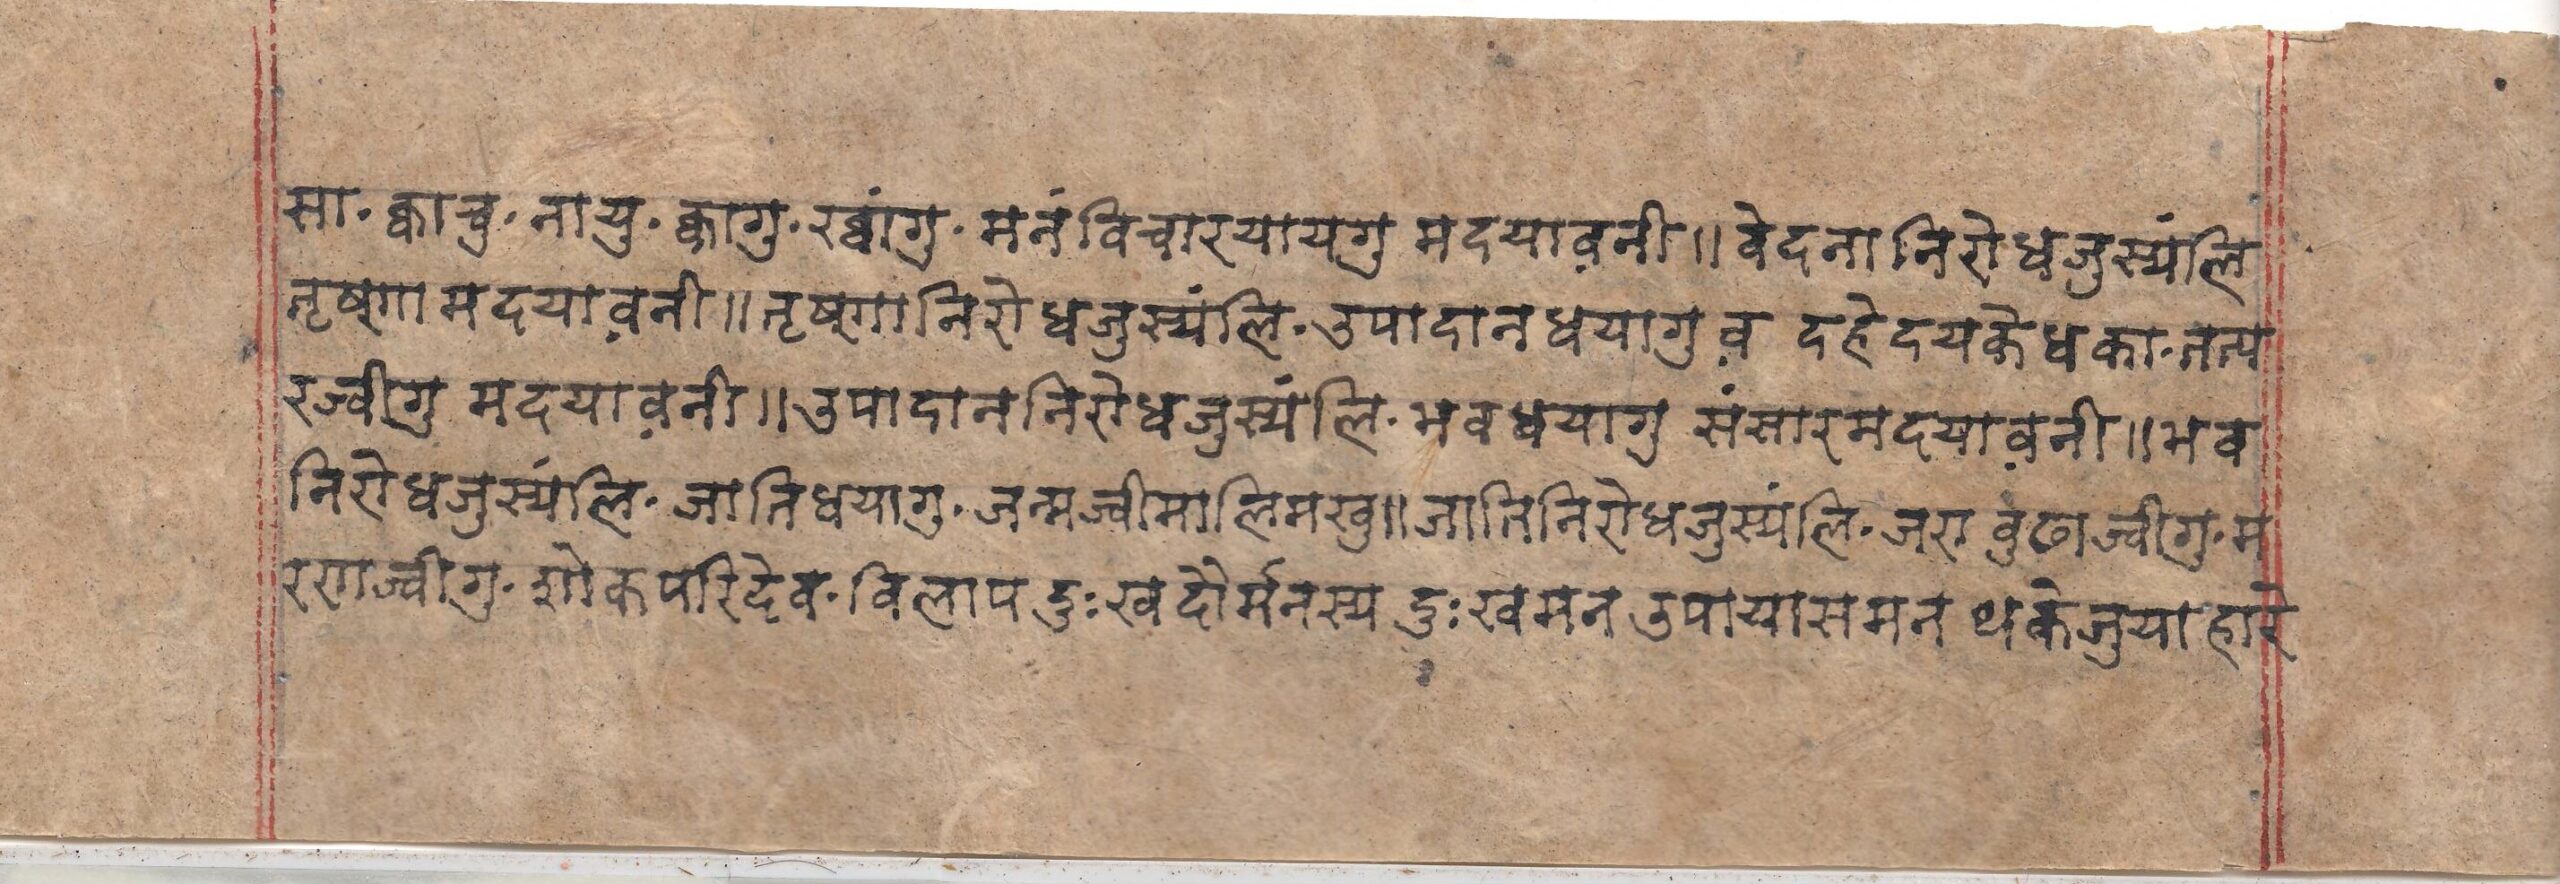 सा· क्वाचु· नायु· क्वागु· रव्वांगु· मनं विचारयायगु मदयाव़नी॥ वेदना निरोधजुस्यंलि
तृष्णा मदयाव़नी॥ तृष्णानिरोधजुस्यंलि· उपादानधयागु व़ दहे दयकेधका· तत्प
रज्वीगु मदयाव़नी॥ उपादाननिरोधजुस्यंलि· भवधयागु संसारमदयाव़नी॥ भव
निरोधजुस्यंलि· जातिधयागु· जन्मज्वीमालिमखु॥ जातिनिरोधजुस्यंलि· जरा वुंढाज्वीगु· म
रणज्वीगु· शोकपरिदेव· विलाप दुःखदौर्मनस्य दुःखमन उपायासमन थकेजुयाहारे